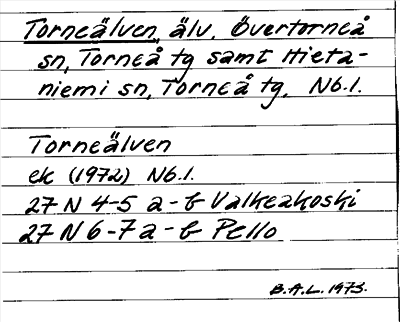 Torneälven, älv. Övertorneå
sn, Torneå tg samt Hieta-
niemi sn, Torneå tg. Nb.l.
Torneälven
ek (1972) Nb.l.
27 N 4-5 a-b Valkeakoski
27 N 6-7 a-b Pello
B.A.L. 1973.